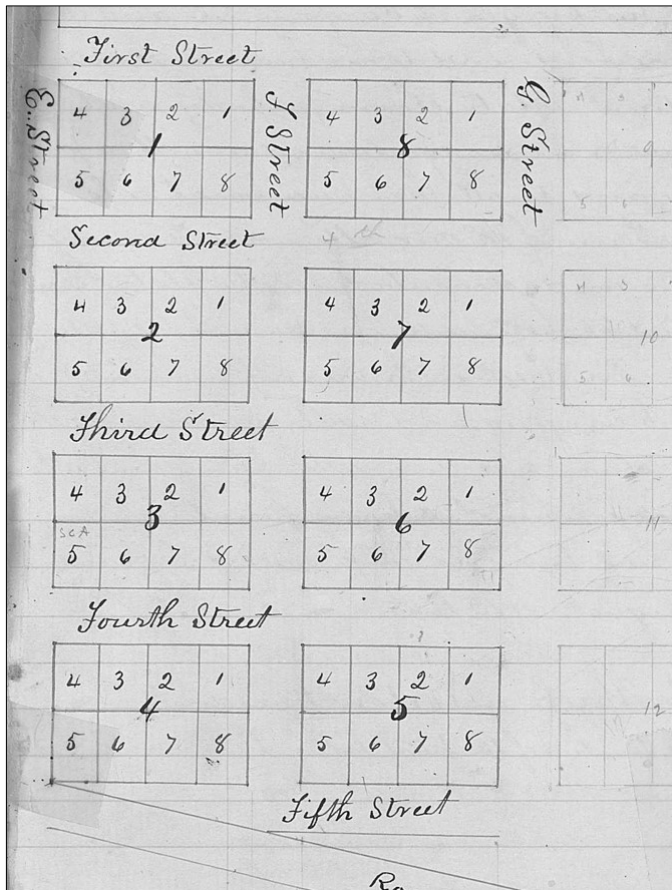 First Street
E. Street
4 3 2 1
1
5 6 7 8
F Street
4 3 2 1
8
5 6 7 8
G. Street
9
5 6
Second Street
4th
4 3 2 1
2
5 6 7 8
4 3 2 1
7
5 6 7 8
4 3
10
5 6
Third Street
4 3 2 1
3
SCA
5 6 7 8
4 3 2 1
6
5 6 7 8
11
Fourth Street
4 3 2 1
4
5 6 7 8
4 3 2 1
5
5 6 7 8
12
Fifth Street
Ro